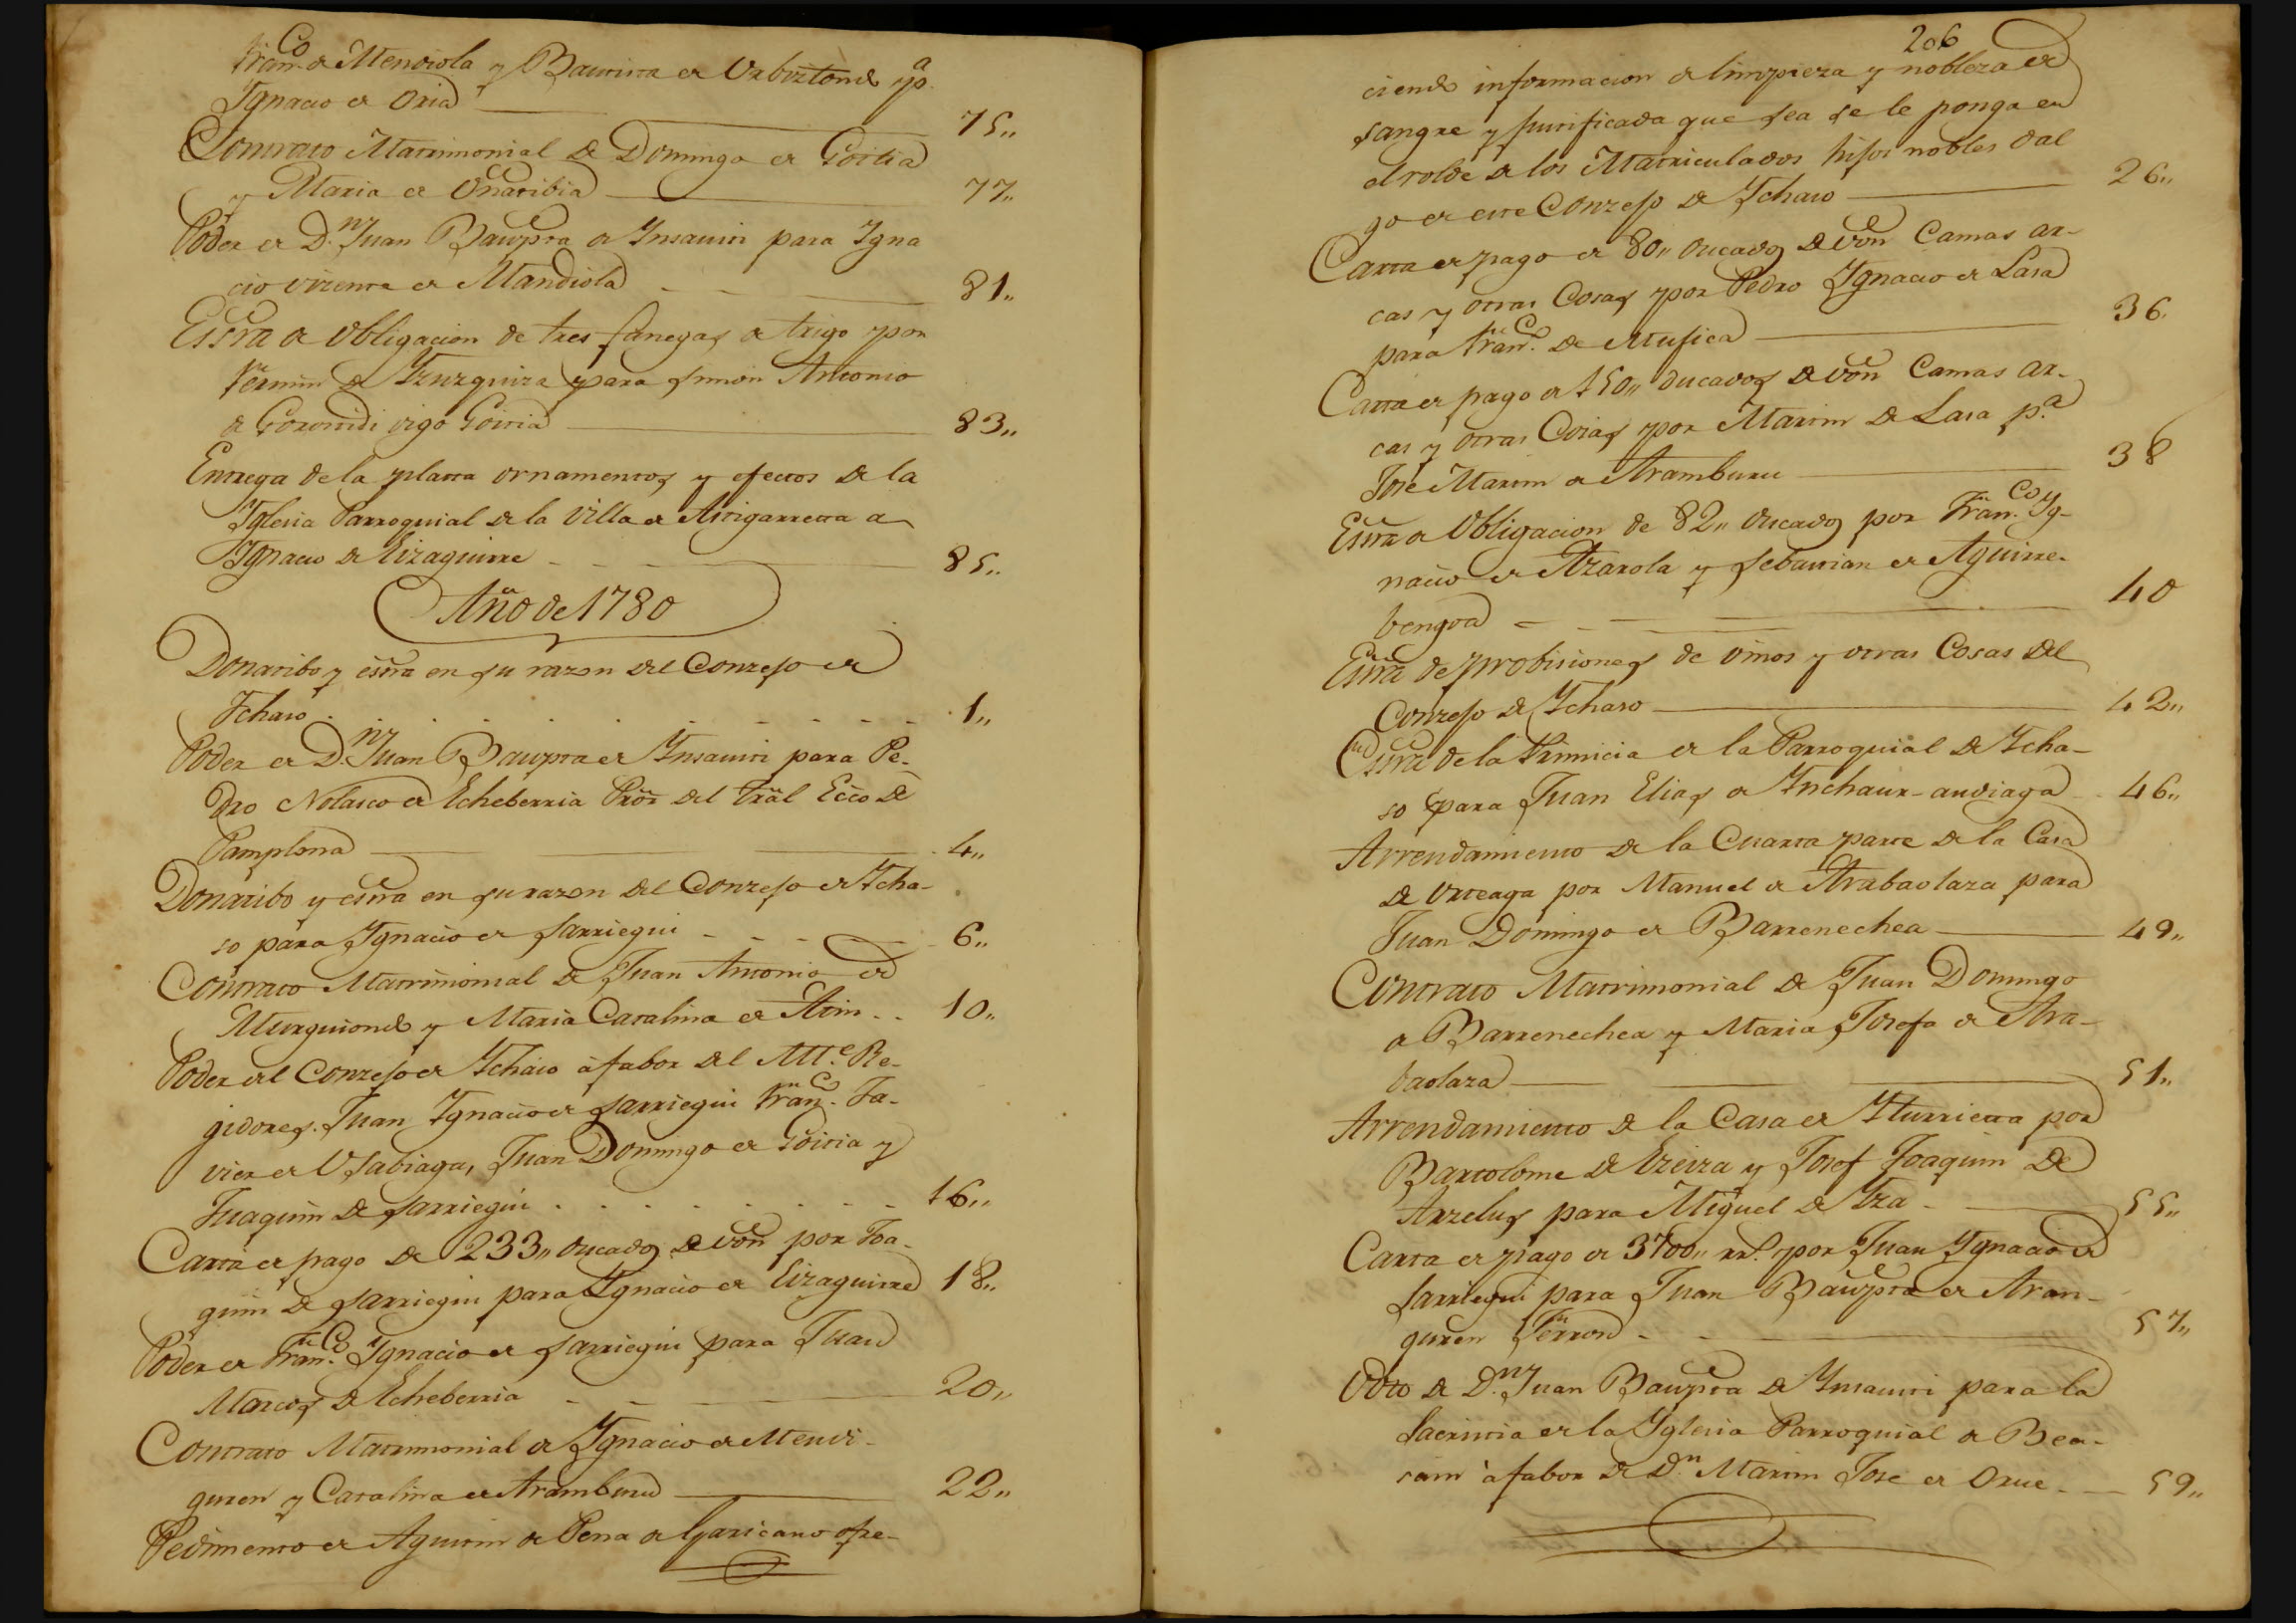 Fran.co de Mendiola y Bautista de Urbiztondo p.a
Ygnacio de Oria 75,,
Contrato Matrimonial de Domingo de Goitia
y Maria de Oñatibia 77,,
Poder de D.n Juan Baup.ta de Ynsausti para Ygna
cio vizente de Mandiola 81,,
Essra de Obligacion de tres fanegas de trigo por
fermin de para Simon Antonio
de Gorostidi vigo Goitia 83,,
Entrega de la platta ornamentos y efectos de la
Yglesia Parroquial de la Villa de Astigarreta a
Ygnacio de Eizaguirre 85,,
Año de 1780
Donatibo y essra en su razon del Conzejo de
Ychaso 1,,
Poder de D.n Juan Baupta de Ynsausti para Pe-
dro Nolasco de Echeberria Prör del träl Ecco de
Pamplona 4,,
Donatibo y essra en su razon del Conzejo de Ycha-
so para Ygnacio de Sarriegui 6,,
Contrato Matrimonial de Juan Antonio de
Murguiondo y Maria Catalina de Atin 10,,
Poder del Conzejo de Ychaso à fabor del Alt.e Re-
gidores. Juan Ygnacio de Sarriegui fran.co Ja-
vier de Usabiaga, Juan Domingo de Goitia y
Juaquin de Sarriegui 16,,
Carta de pago de 233,, ducados de von por Joa-
quin de Sarriegui para Ygnacio de Eizaguirre 18,,
Poder de Fran.co Ygnacio de Sarriegui para Juan
Marcos de Echeberria 20,,
Contrato Matrimonial de Ygnacio de Mendi-
guren y Catalina de Aramburu 22,,
Pedimento de Agustin de Pena de Garicano ofre-
206
ciendo informacion de limpieza y nobleza de
sangre y purificada que sea se le ponga en
el rolde de los Matriculados hijos nobles dal
go de este Conzejo de Ychaso 26,,
Carta de pago de 80,, ducados de von Camas ar-
cas y otras Cosas por Pedro Ygnacio de Lasa
para fran.co de Mujica 36.
Carta de pago de 150,, ducados de von Camas ar-
cas y otras Cosas por Martin de Lasa p.a
Jose Martin de Aramburu 38
Essra de Obligacion de 82,, ducados por Fran.co Yg-
nacio de Azarola y Sebastian de Aguirre-
bengoa 40
Essra de probisiones de vinos y otras Cosas del
Conzejo de Ychaso 42,,
Essra de la Primicia de la Parroquial de Ycha-
so para Juan Elias de Ynchaur-andiaga 46,,
Arrendamiento de la Cuarta parte de la Casa
de Urteaga por Manuel de Arabaolaza para
Juan Domingo de Barrenechea 49,,
Contrato Matrimonial de Juan Domingo
de Barrenechea y Maria Josefa de Ara-
baolaza 51,,
Arrendamiento de la Casa de Yturrieta por
Bartolome de Ezeiza y Josef Joaquin de
Arzelus para Miguel de Yza 55,,
Carta de pago de 3700,, rr.s por Juan Ygnacio de
Sarriegui para Juan Baupta de Aran-
guren 57,,
Voto de D.n Juan Baupta de Ynsausti para la
Sacristia de la Yglesia Parroquial de Bea-
sain à fabor de D.n Martin Jose de Orue 59,,